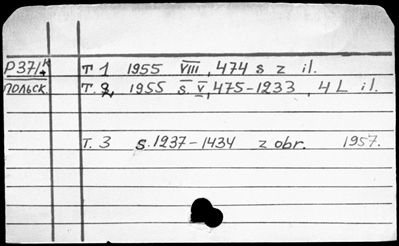 P37/к т 1 1955 VIII, 474 s z il.
польск. т. 2, 1955 s. V, 475-1233, 4 L il.
т. 3 s. 1237-1434 z obr. 1957.